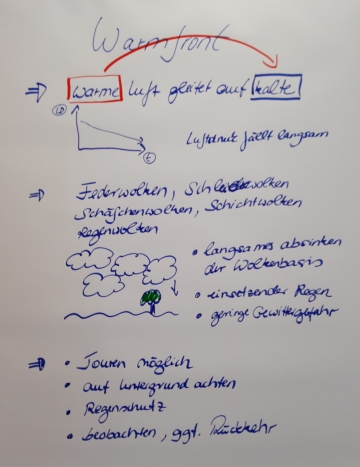 Warmfront
⇒ warme Luft gleitet auf kalte
LD
t
Luftdruck fällt langsam
⇒ Federwolken, Schleierwolken
Schäfchenwolken, Schichtwolken
Regenwolken
• langsames absinken
der Wolkenbasis
• einsetzender Regen
• geringe Gewittergefahr
⇒ • Touren möglich
• auf Untergrund achten
• Regenschutz
• beobachten, ggf. Rückkehr